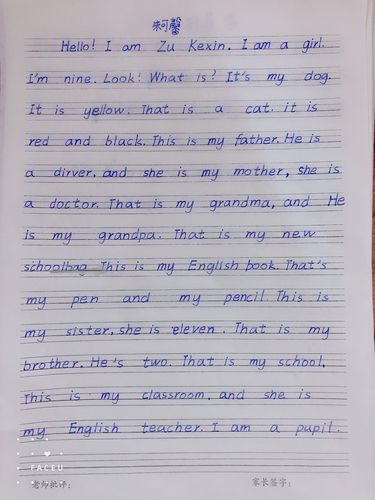 Hello! I am Zu Kexin. I am a girl.
I'm nine. Look! What is? It's my dog.
It is yellow. That is a cat. it is
red and black. This is my father. He is
a dirver, and she is my mother, she is
a doctor. That is my grandma, and He
is my grandpa. That is my new
schoolbag This is my English book. That's
my pen and my pencil. This is
my sister, she is eleven. That is my
brother. He's two. That is my school,
This is my classroom, and she is
my English teacher. I am a pupil.
FACEU
老师批评: 家长签字: